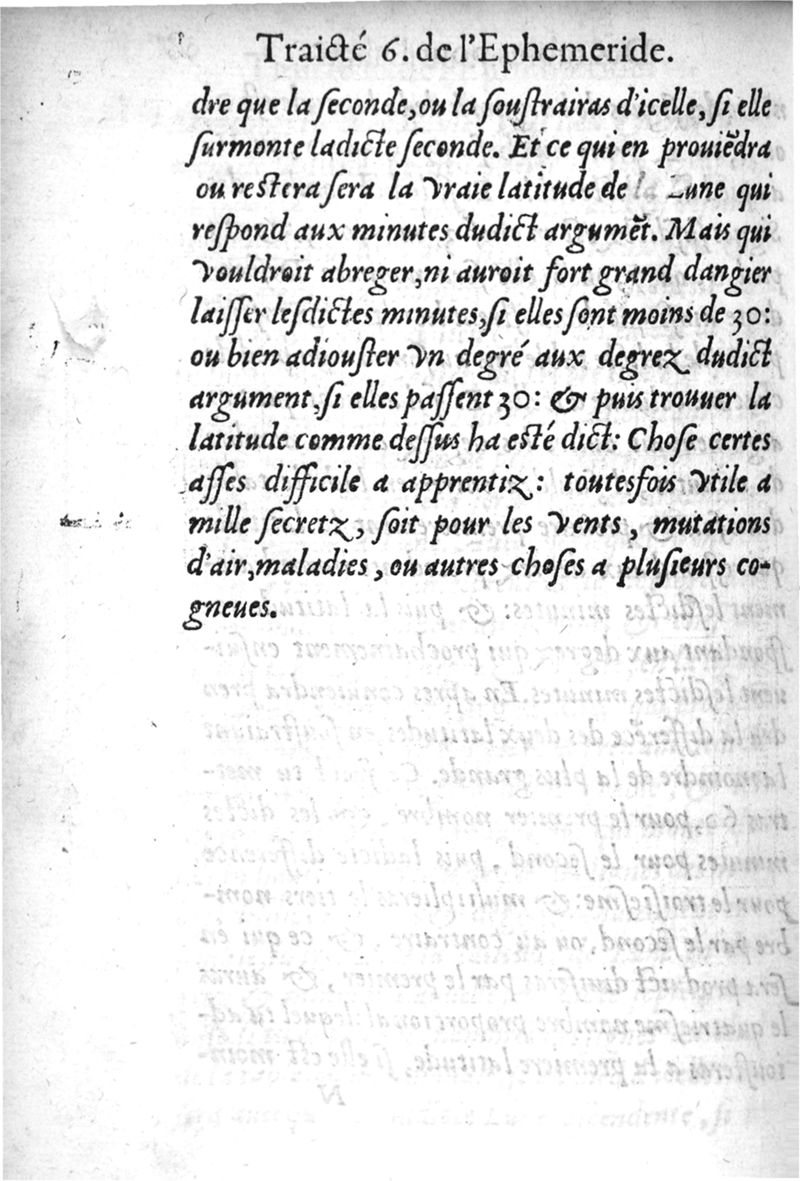 Traicté 6. de l'Ephemeride.
dre que la seconde, ou la soustrairas d'icelle, si elle
surmonte ladicte seconde. Et ce qui en prouiẽdra
ou restera sera la vraie latitude de la Lune qui
respond aux minutes dudict argumẽt. Mais qui
vouldroit abreger, ni auroit fort grand dangier
laisser lesdictes minutes, si elles sont moins de 30:
ou bien adiouster vn degré aux degrez dudict
argument, si elles passent 30: & puis trouuer la
latitude comme dessus ha esté dict: Chose certes
asses difficile a apprentiz: toutesfois vtile a
mille secretz, soit pour les vents, mutations
d'air, maladies, ou autres choses a plusieurs co-
gneues.